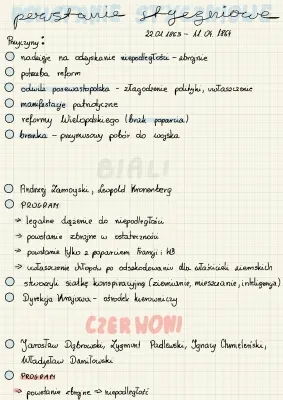 powstanie styczniowe
22.01.1863 - 11.04.1864
Przyczyny:
nadzieje na odzyskanie niepodległości - zbrojnie
potrzeba reform
odwilż posewastopolska - złagodzenie polityki, uwłaszczenie
manifestacje patriotyczne
reformy Wielopolskiego (brak poparcia)
branka - przymusowy pobór do wojska
BIALI
Andrzej Zamoyski, Leopold Kronenberg
PROGRAM
⇒ legalne dążenie do niepodległości
⇒ powstanie zbrojne w ostateczności
⇒ powstanie tylko z poparciem Francji i WB
⇒ uwłaszczenie chłopów po odszkodowaniu dla właścicieli ziemskich
stworzyli siatkę konspiracyjną (ziemianie, mieszczanie, inteligencja)
Dyrekcja Krajowa - ośrodek kierowniczy
CZERWONI
Jarosław Dąbrowski, Zygmunt Padlewski, Ignacy Chmieleński,
Władysław Daniłowski
PROGRAM
⇒ powstanie zbrojne ⇒ niepodległość